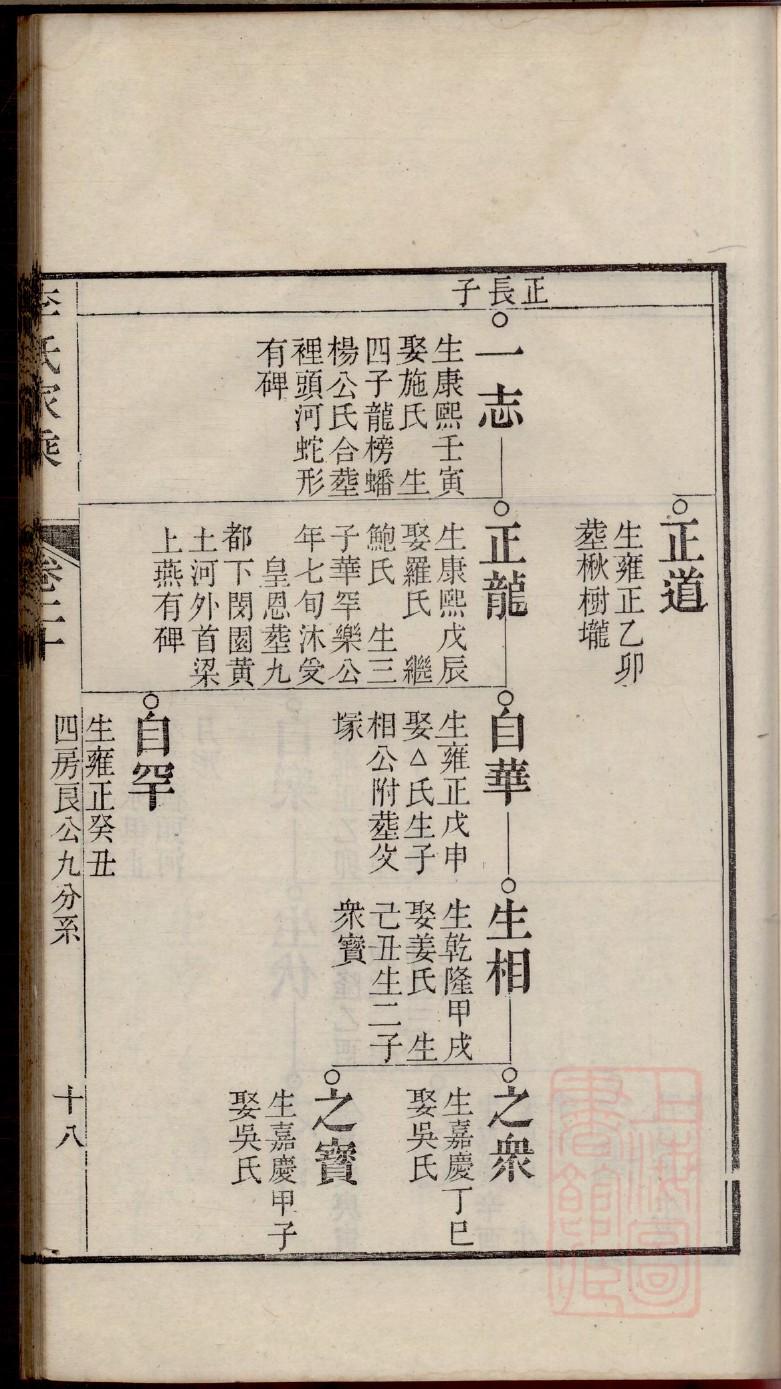 正長子
正道
生雍正乙卯
塟楸樹壠
一志
生康熙壬寅
娶施氏　生
四子龍榜蟠
楊公氏合塟
裡頭河蛇形
有碑
正龍
生康熙戊辰
娶羅氏　繼
鮑氏　生三
子華罕樂公
年七旬沐受
皇恩塟九
都下閔園黃
土河外首梁
上燕有碑
自華
生雍正戊申
娶△氏生子
相公附塟父
塚
生相
生乾隆甲戌
娶姜氏　生
己丑生二子
衆寶
之衆
生嘉慶丁巳
娶吳氏
之寶
生嘉慶甲子
娶吳氏
自罕
生雍正癸丑
四房良公九分系
十八
李氏家乘
卷二十
上海圖書館藏